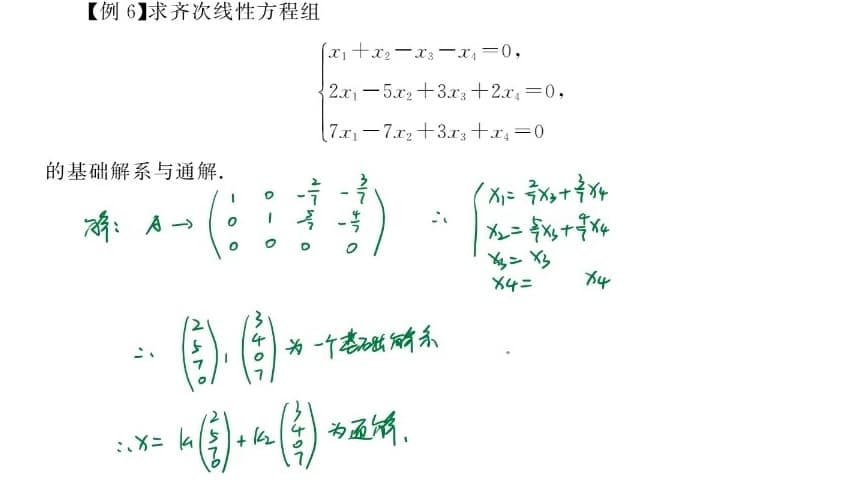 【例 6】求齐次线性方程组
x₁+x₂-x₃-x₄=0,
2x₁-5x₂+3x₃+2x₄=0,
7x₁-7x₂+3x₃+x₄=0
的基础解系与通解.
解: A → (1 0 -2/7 -3/7
0 1 -5/7 -4/7
0 0 0 0)
∴ { x₁= 2/7 x₃ + 3/7 x₄
x₂= 5/7 x₃ + 4/7 x₄
x₃= x₃
x₄= x₄
∴ (2 5 7 0), (3 4 0 7) 为一个基础解系
∴ x= k₁(2 5 7 0) + k₂(3 4 0 7) 为通解.